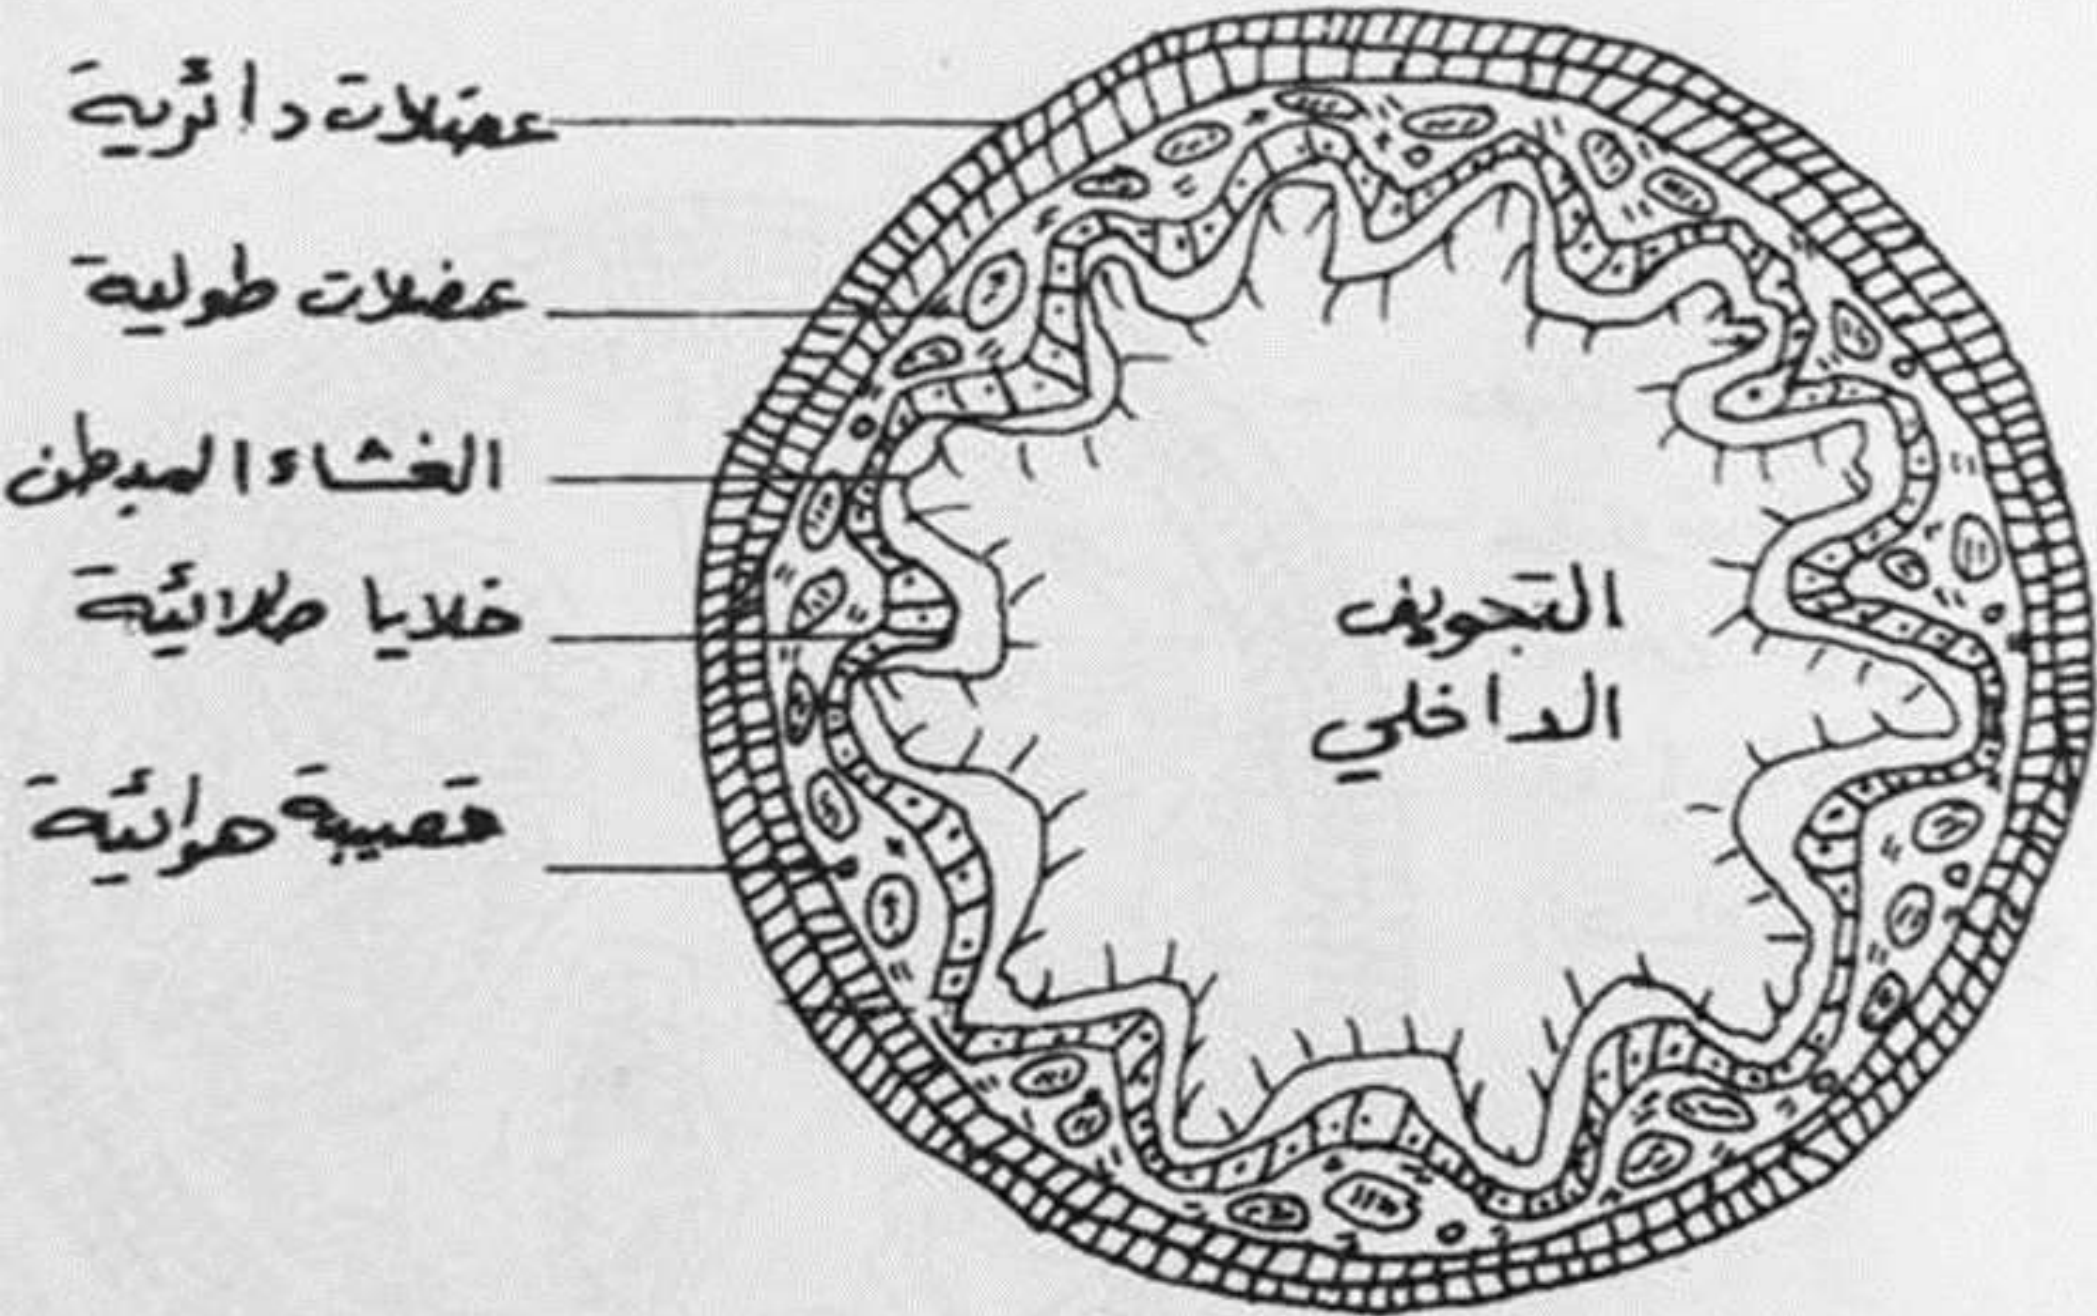 عضلات دائرية
عضلات طولية
الغشاء المبطن
خلايا طلائية
قصيبة هوائية
التجويف
الداخلي